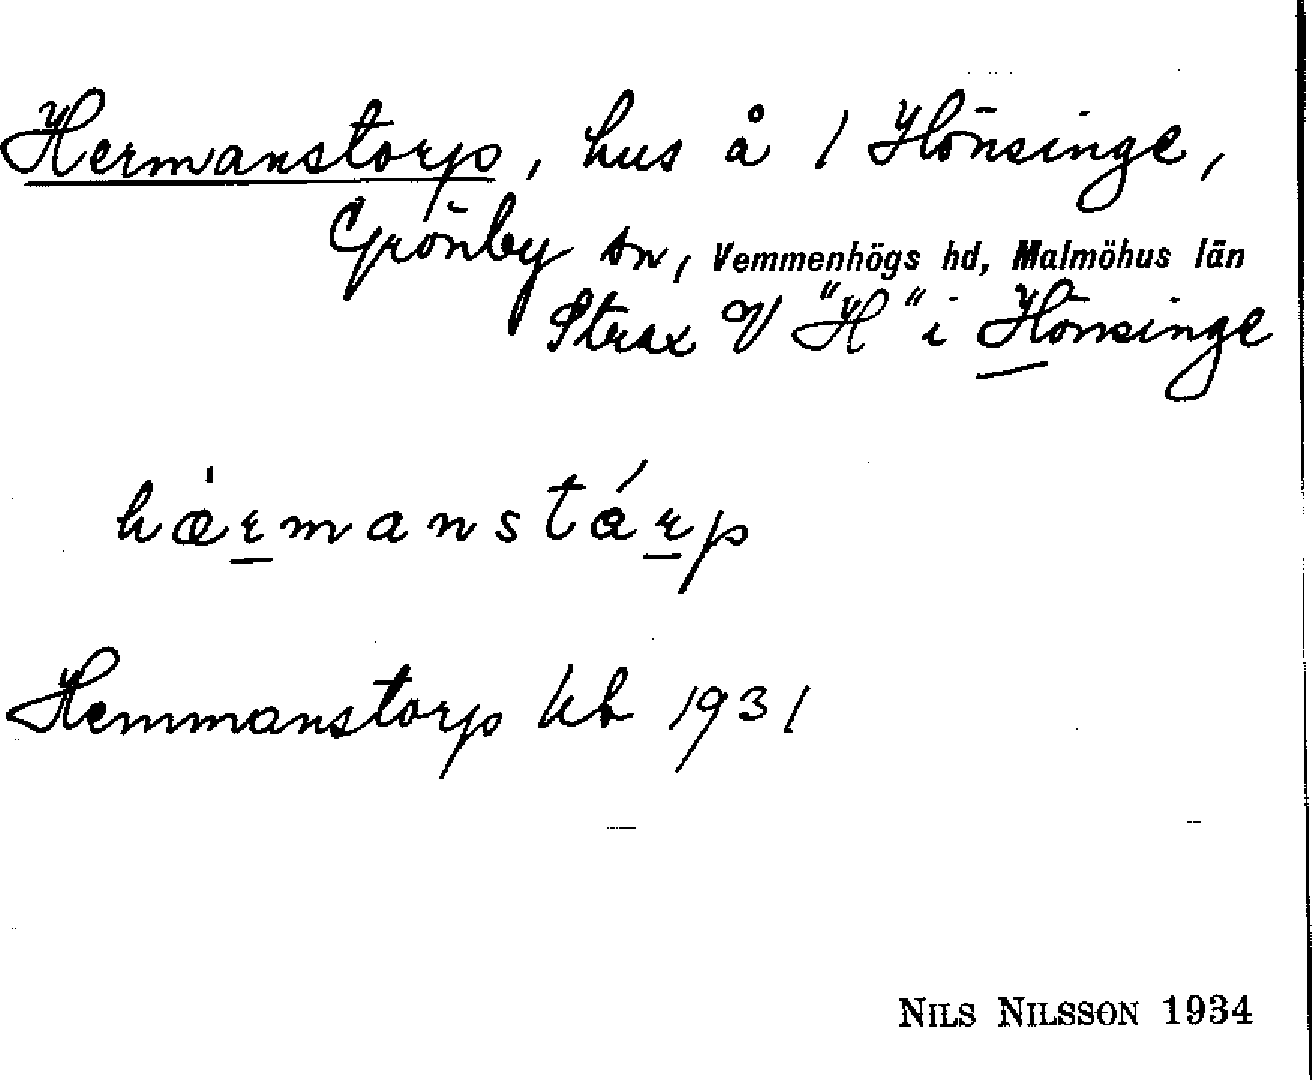 Hermanstorp, hus å 1 Hönsinge,
Grönby sn, Vemmenhögs hd, Malmöhus län
Strax V "H" i Hönsinge
hæ̀r̲manstár̲p
Hemmanstorp kb 1931
NILS NILSSON 1934